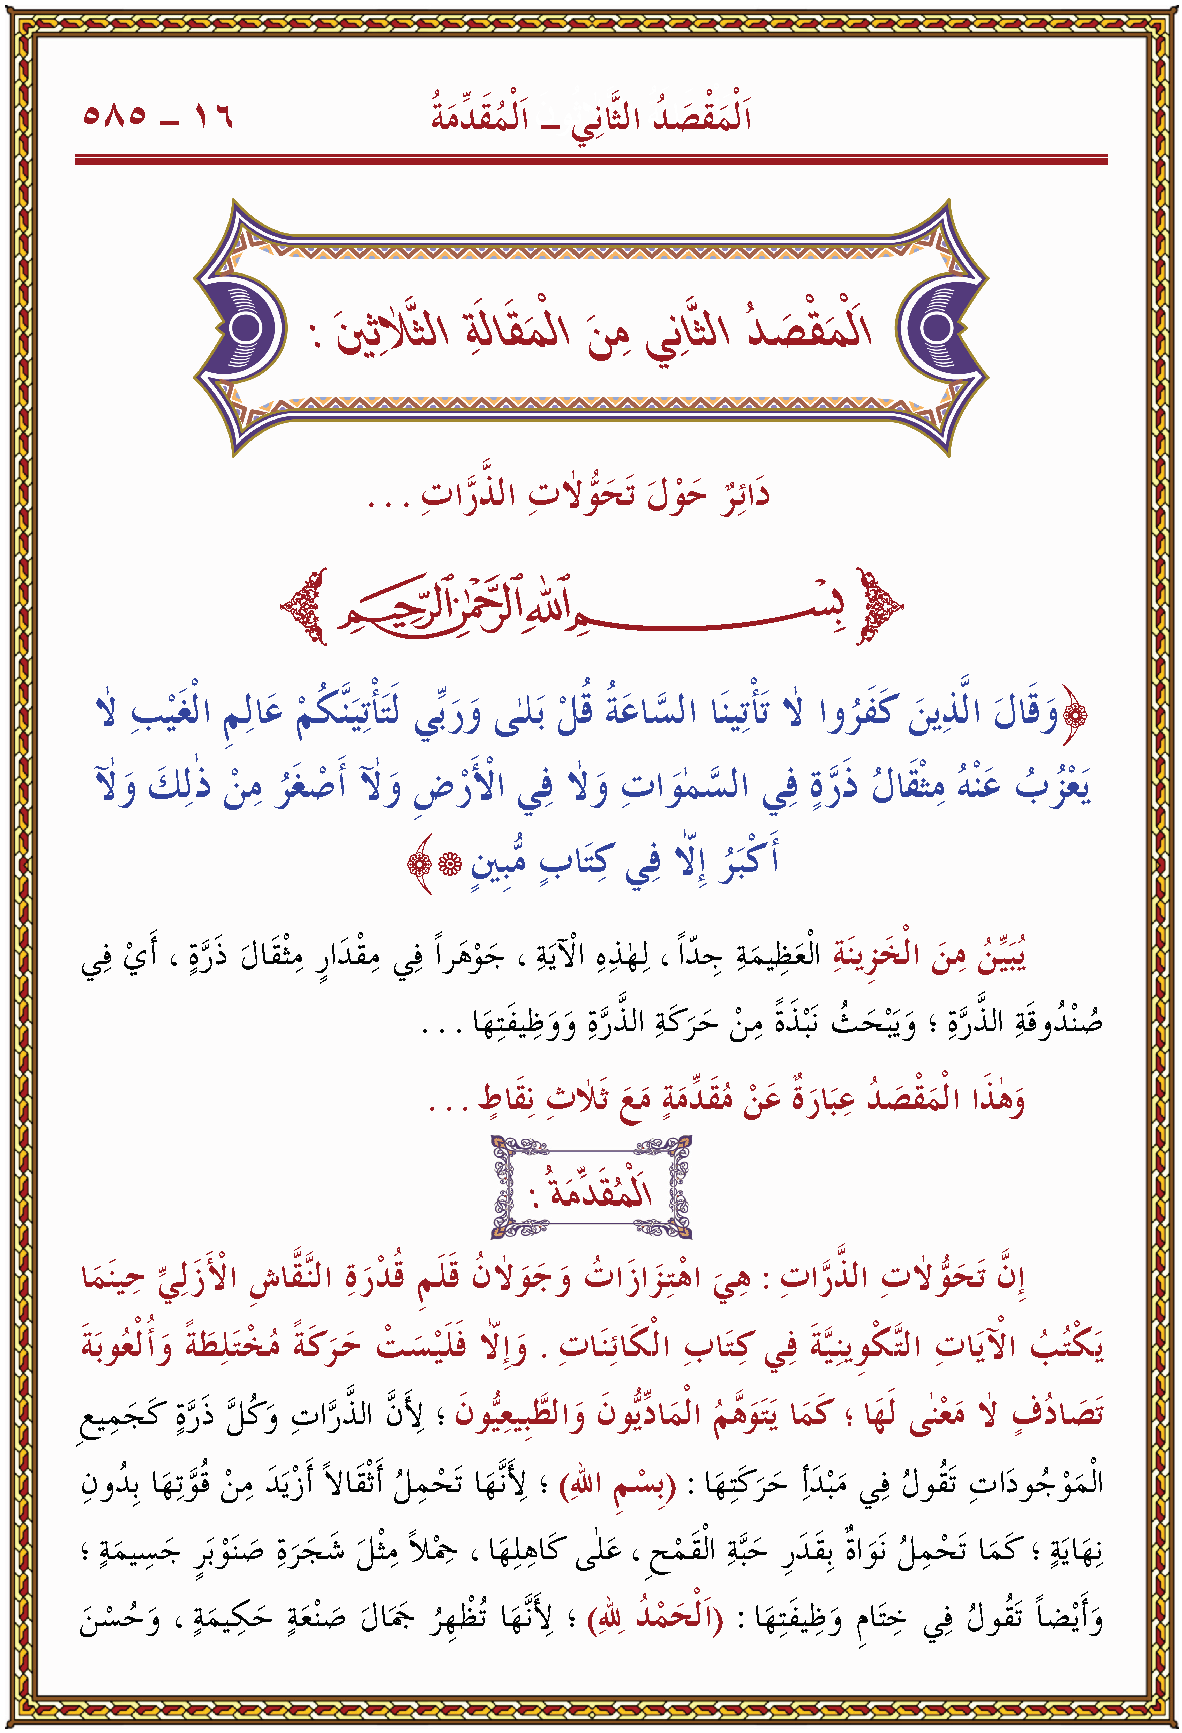 اَلْمَقْصَدُ الثَّانِي ـ اَلْمُقَدِّمَةُ
١٦ ـ ٥٨٥
اَلْمَقْصَدُ الثَّانِي مِنَ الْمَقَالَةِ الثَّلٰاثِينَ :
دَائِرٌ حَوْلَ تَحَوُّلٰاتِ الذَّرَّاتِ . . .
بِسْمِ اللهِ الرَّحْمٰنِ الرَّحِيمِ
﴿وَقَالَ الَّذِينَ كَفَرُوا لٰا تَأْتِينَا السَّاعَةُ قُلْ بَلٰى وَرَبِّي لَتَأْتِيَنَّكُمْ عَالِمِ الْغَيْبِ لٰا
يَعْزُبُ عَنْهُ مِثْقَالُ ذَرَّةٍ فِي السَّمٰوَاتِ وَلٰا فِي الْأَرْضِ وَلٰٓا أَصْغَرُ مِنْ ذٰلِكَ وَلٰٓا
أَكْبَرُ إِلّٰا فِي كِتَابٍ مُّبِينٍ ۞﴾
يُبَيِّنُ مِنَ الْخَزِينَةِ الْعَظِيمَةِ جِدّاً ، لِهٰذِهِ الْآيَةِ ، جَوْهَراً فِي مِقْدَارٍ مِثْقَالَ ذَرَّةٍ ، أَيْ فِي
صُنْدُوقَةِ الذَّرَّةِ ؛ وَيَبْحَثُ نَبْذَةً مِنْ حَرَكَةِ الذَّرَّةِ وَوَظِيفَتِهَا . . .
وَهٰذَا الْمَقْصَدُ عِبَارَةٌ عَنْ مُقَدِّمَةٍ مَعَ ثَلٰاثِ نِقَاطٍ . . .
اَلْمُقَدِّمَةُ :
إِنَّ تَحَوُّلٰاتِ الذَّرَّاتِ : هِيَ اهْتِزَازَاتُ وَجَوَلٰانُ قَلَمِ قُدْرَةِ النَّقَّاشِ الْأَزَلِيِّ حِينَمَا
يَكْتُبُ الْآيَاتِ التَّكْوِينِيَّةَ فِي كِتَابِ الْكَائِنَاتِ . وَإِلّٰا فَلَيْسَتْ حَرَكَةً مُخْتَلِطَةً وَأُلْعُوبَةَ
تَصَادُفٍ لٰا مَعْنٰى لَهَا ؛ كَمَا يَتَوَهَّمُ الْمَادِّيُّونَ وَالطَّبِيعِيُّونَ ؛ لِأَنَّ الذَّرَّاتِ وَكُلَّ ذَرَّةٍ كَجَمِيعِ
الْمَوْجُودَاتِ تَقُولُ فِي مَبْدَأِ حَرَكَتِهَا : (بِسْمِ اللهِ) ؛ لِأَنَّهَا تَحْمِلُ أَثْقَالاً أَزْيَدَ مِنْ قُوَّتِهَا بِدُونِ
نِهَايَةٍ ؛ كَمَا تَحْمِلُ نَوَاةٌ بِقَدَرِ حَبَّةِ الْقَمْحِ ، عَلٰى كَاهِلِهَا ، حِمْلاً مِثْلَ شَجَرَةِ صَنَوْبَرٍ جَسِيمَةٍ ؛
وَأَيْضاً تَقُولُ فِي خِتَامِ وَظِيفَتِهَا : (اَلْحَمْدُ لِلهِ) ؛ لِأَنَّهَا تُظْهِرُ جَمَالَ صَنْعَةٍ حَكِيمَةٍ ، وَحُسْنَ